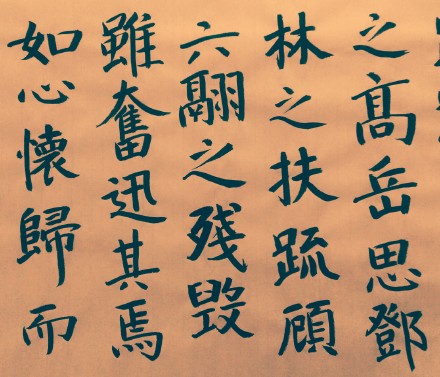 之髙岳思鄧
林之扶疏顧
六翮之殘毀
雖奮迅其焉
如心懷歸而